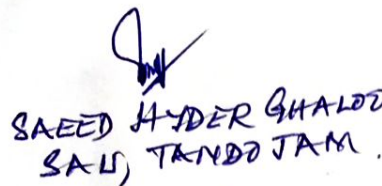 SAEED HYDER GHALOO
SAU, TANDO JAM.